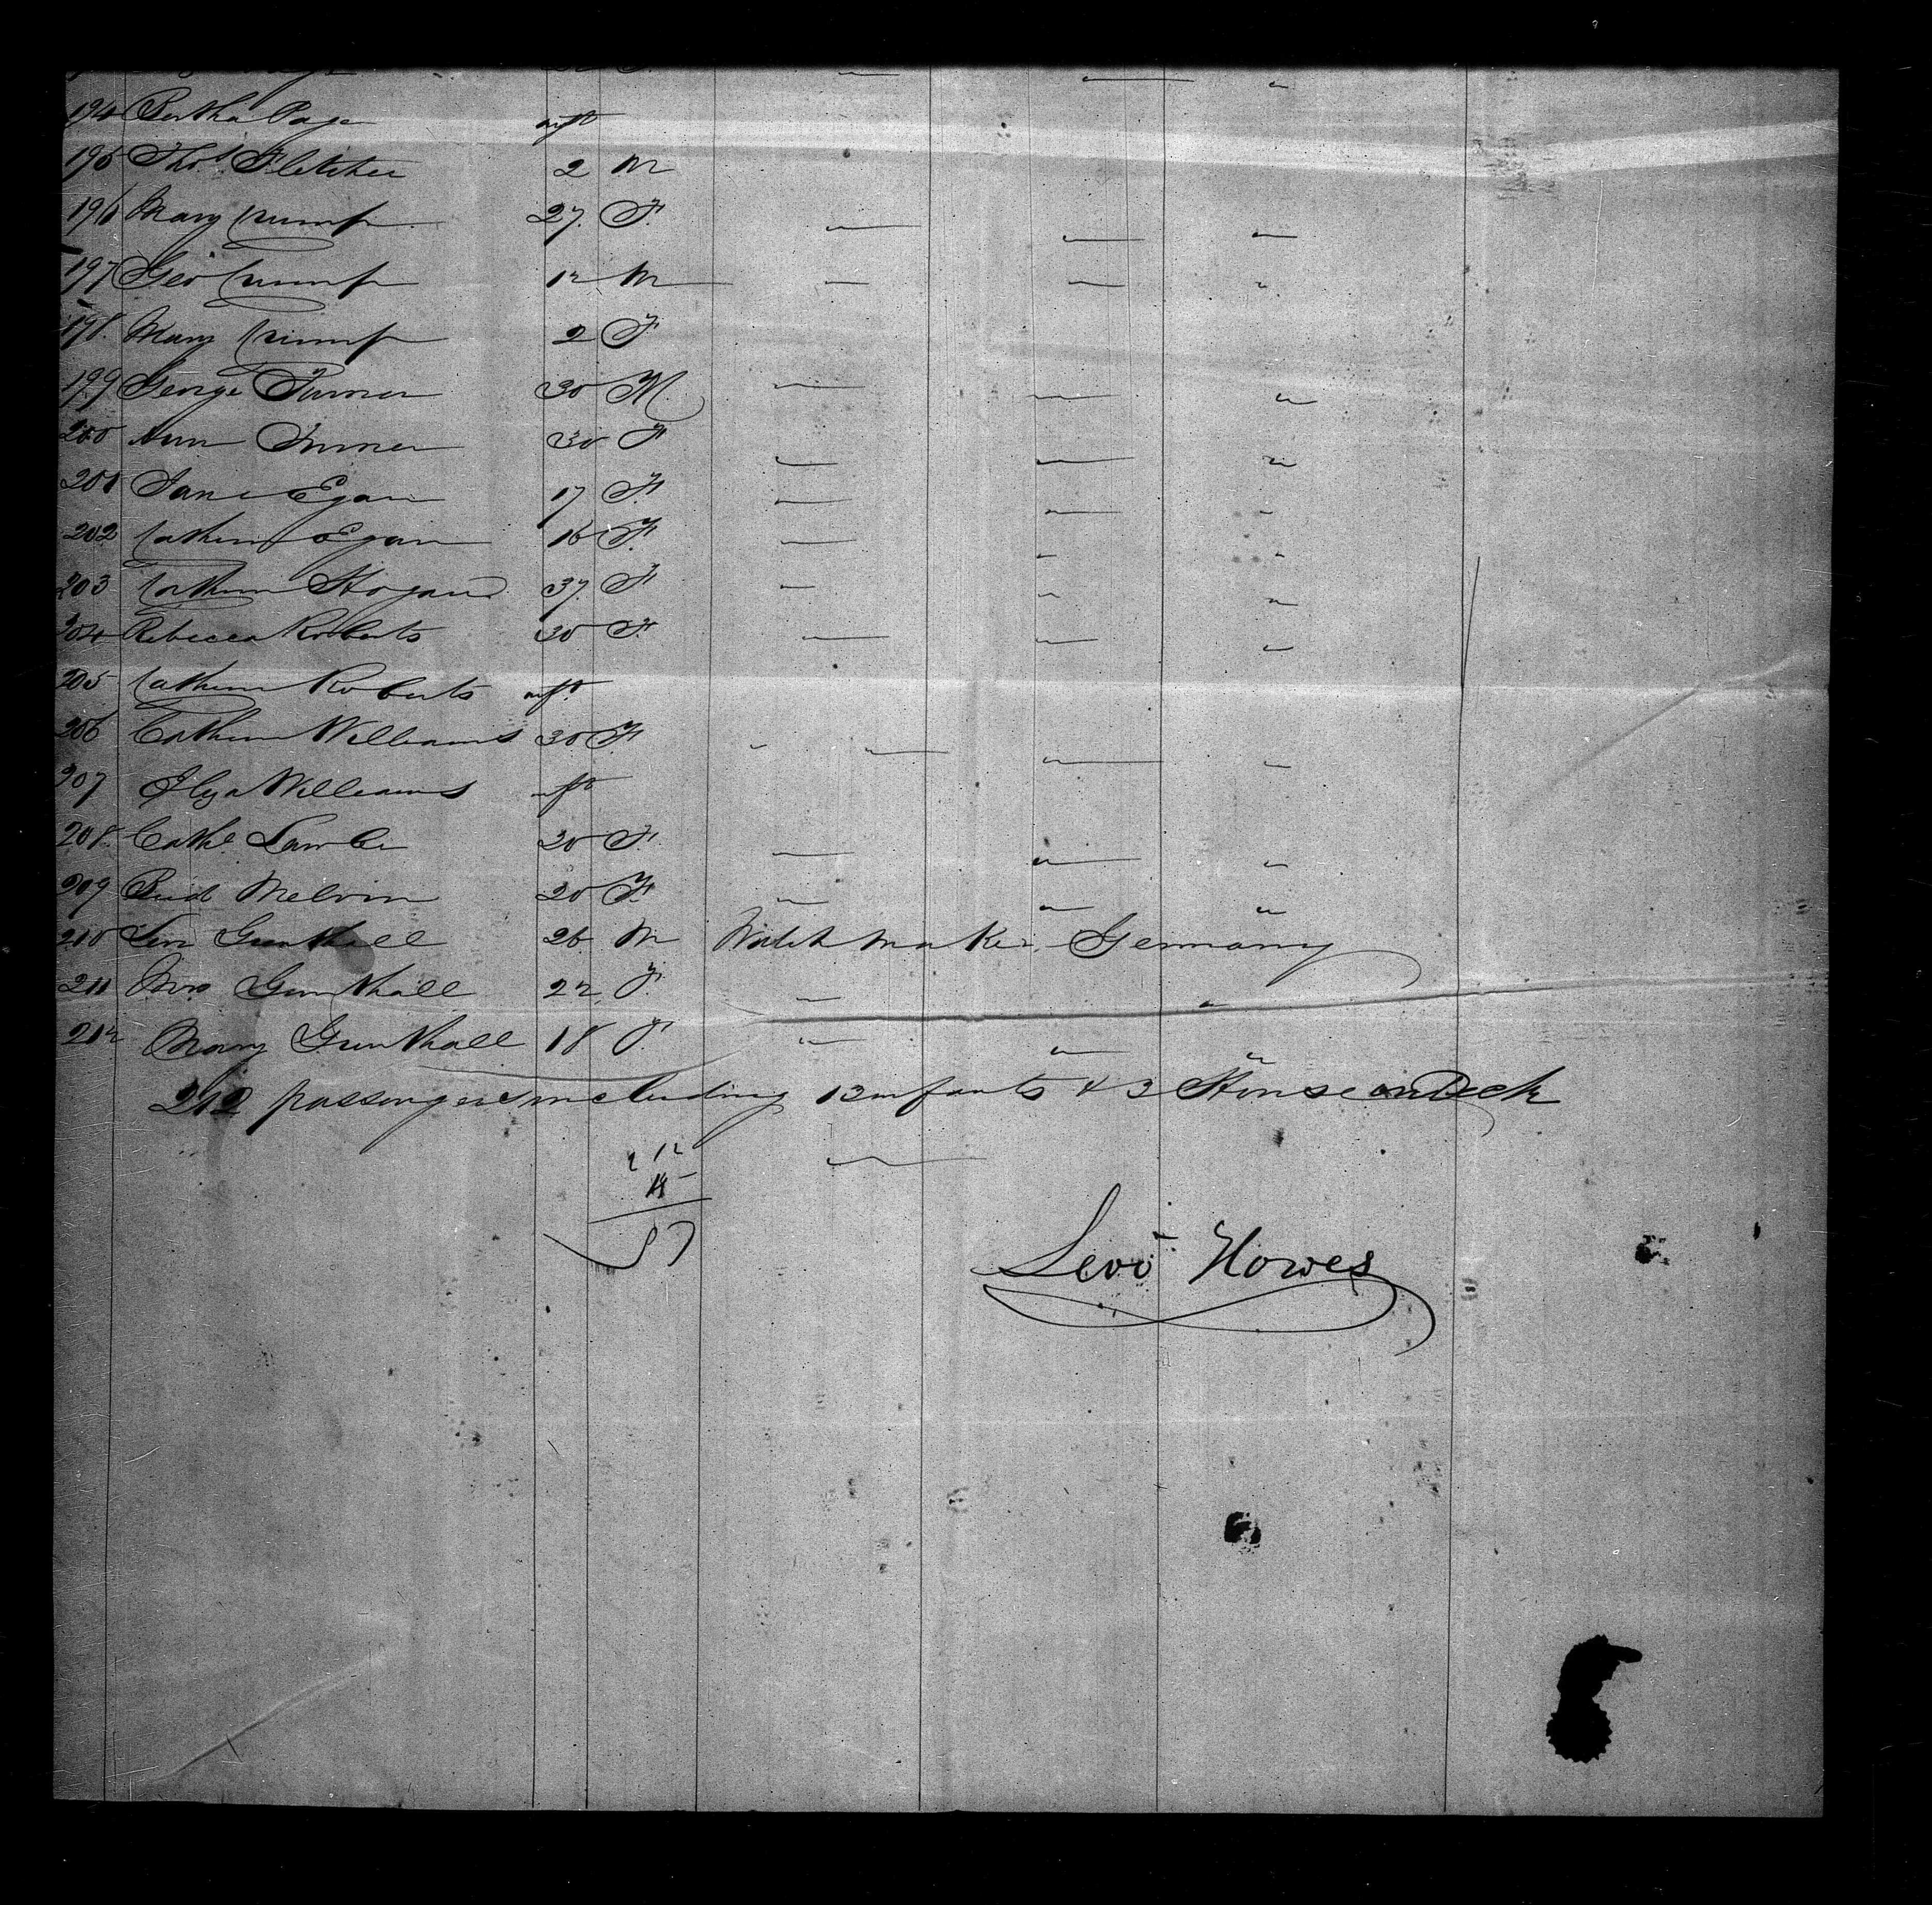 194 Bertha Page inft
195 Thos Fletcher 2 M
196 Mary Crump 27 F "
197 Geo Crump 12 M " " "
198 Mary Crump 2 F
199 George Turner 30 M " " "
200 Ann Turner 30 F " " "
201 Jane Egan 17 F " " "
202 Catherin Egan 16 F " " "
203 Catherin Hogan 37 F " " "
204 Rebecca Roberts 30 F " " "
205 Catherin Roberts inft
206 Catherin Williams 30 F " " "
207 Williams inft
208 Cathe Lambe 20 F " " "
209 Melvin 20 F " " "
210 Levi Gunthall 26 M Watch Maker Germany
211 Mrs Gunthall 22 F " "
212 Mary Gunthall 18 F " " "
212 passengers including 13 infants & 3 House on Deck
212
15
197
Levi Howes